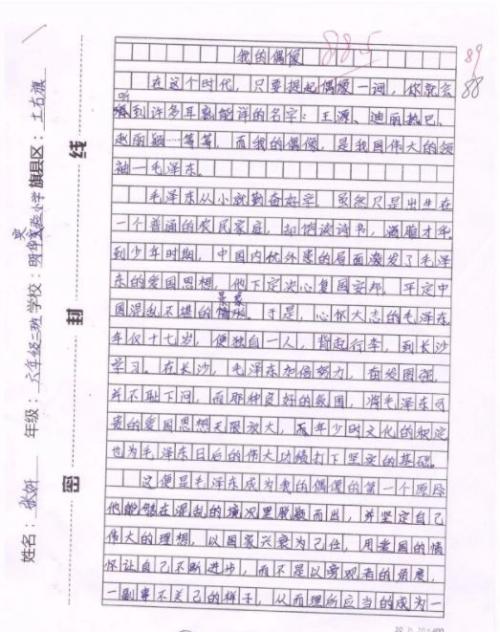 我的偶像
88.5
89
88
在这个时代，只要提起偶像一词，你就会
听到许多耳熟能详的名字：王源、迪丽热巴、
赵丽颖…等等，而我的偶像，是我国伟大的领
袖—毛泽东。
毛泽东从小就勤奋好学，虽然只是出生在
一个普通的农民家庭，却饱读诗书，满腹才华。
到少年时期，中国内忧外患的局面激发了毛泽
东的爱国思想，他下定决心复国安邦，平定中
国混乱不堪的景象。于是，心怀大志的毛泽东
年仅十七岁，便独自一人，背起行李，到长沙
学习。在长沙，毛泽东加倍努力，奋发图强，
并不耻下问，而那种良好的氛围，将毛泽东可
贵的爱国思想无限放大，而年少时文化的奠定
也为毛泽东日后的伟大功绩打下坚实的基础。
这便是毛泽东成为我的偶像的第一个原因
他能够在混乱的境况里脱颖而出，并坚定自己
伟大的理想，以国家兴衰为己任，用爱国的情
怀让自己不断进步，而不是以旁观者的角度，
一副事不关己的样子，从而理所应当的成为一
姓名：张妍 年级：六年级三班 学校：小学 旗县区：土右旗
密 封 线